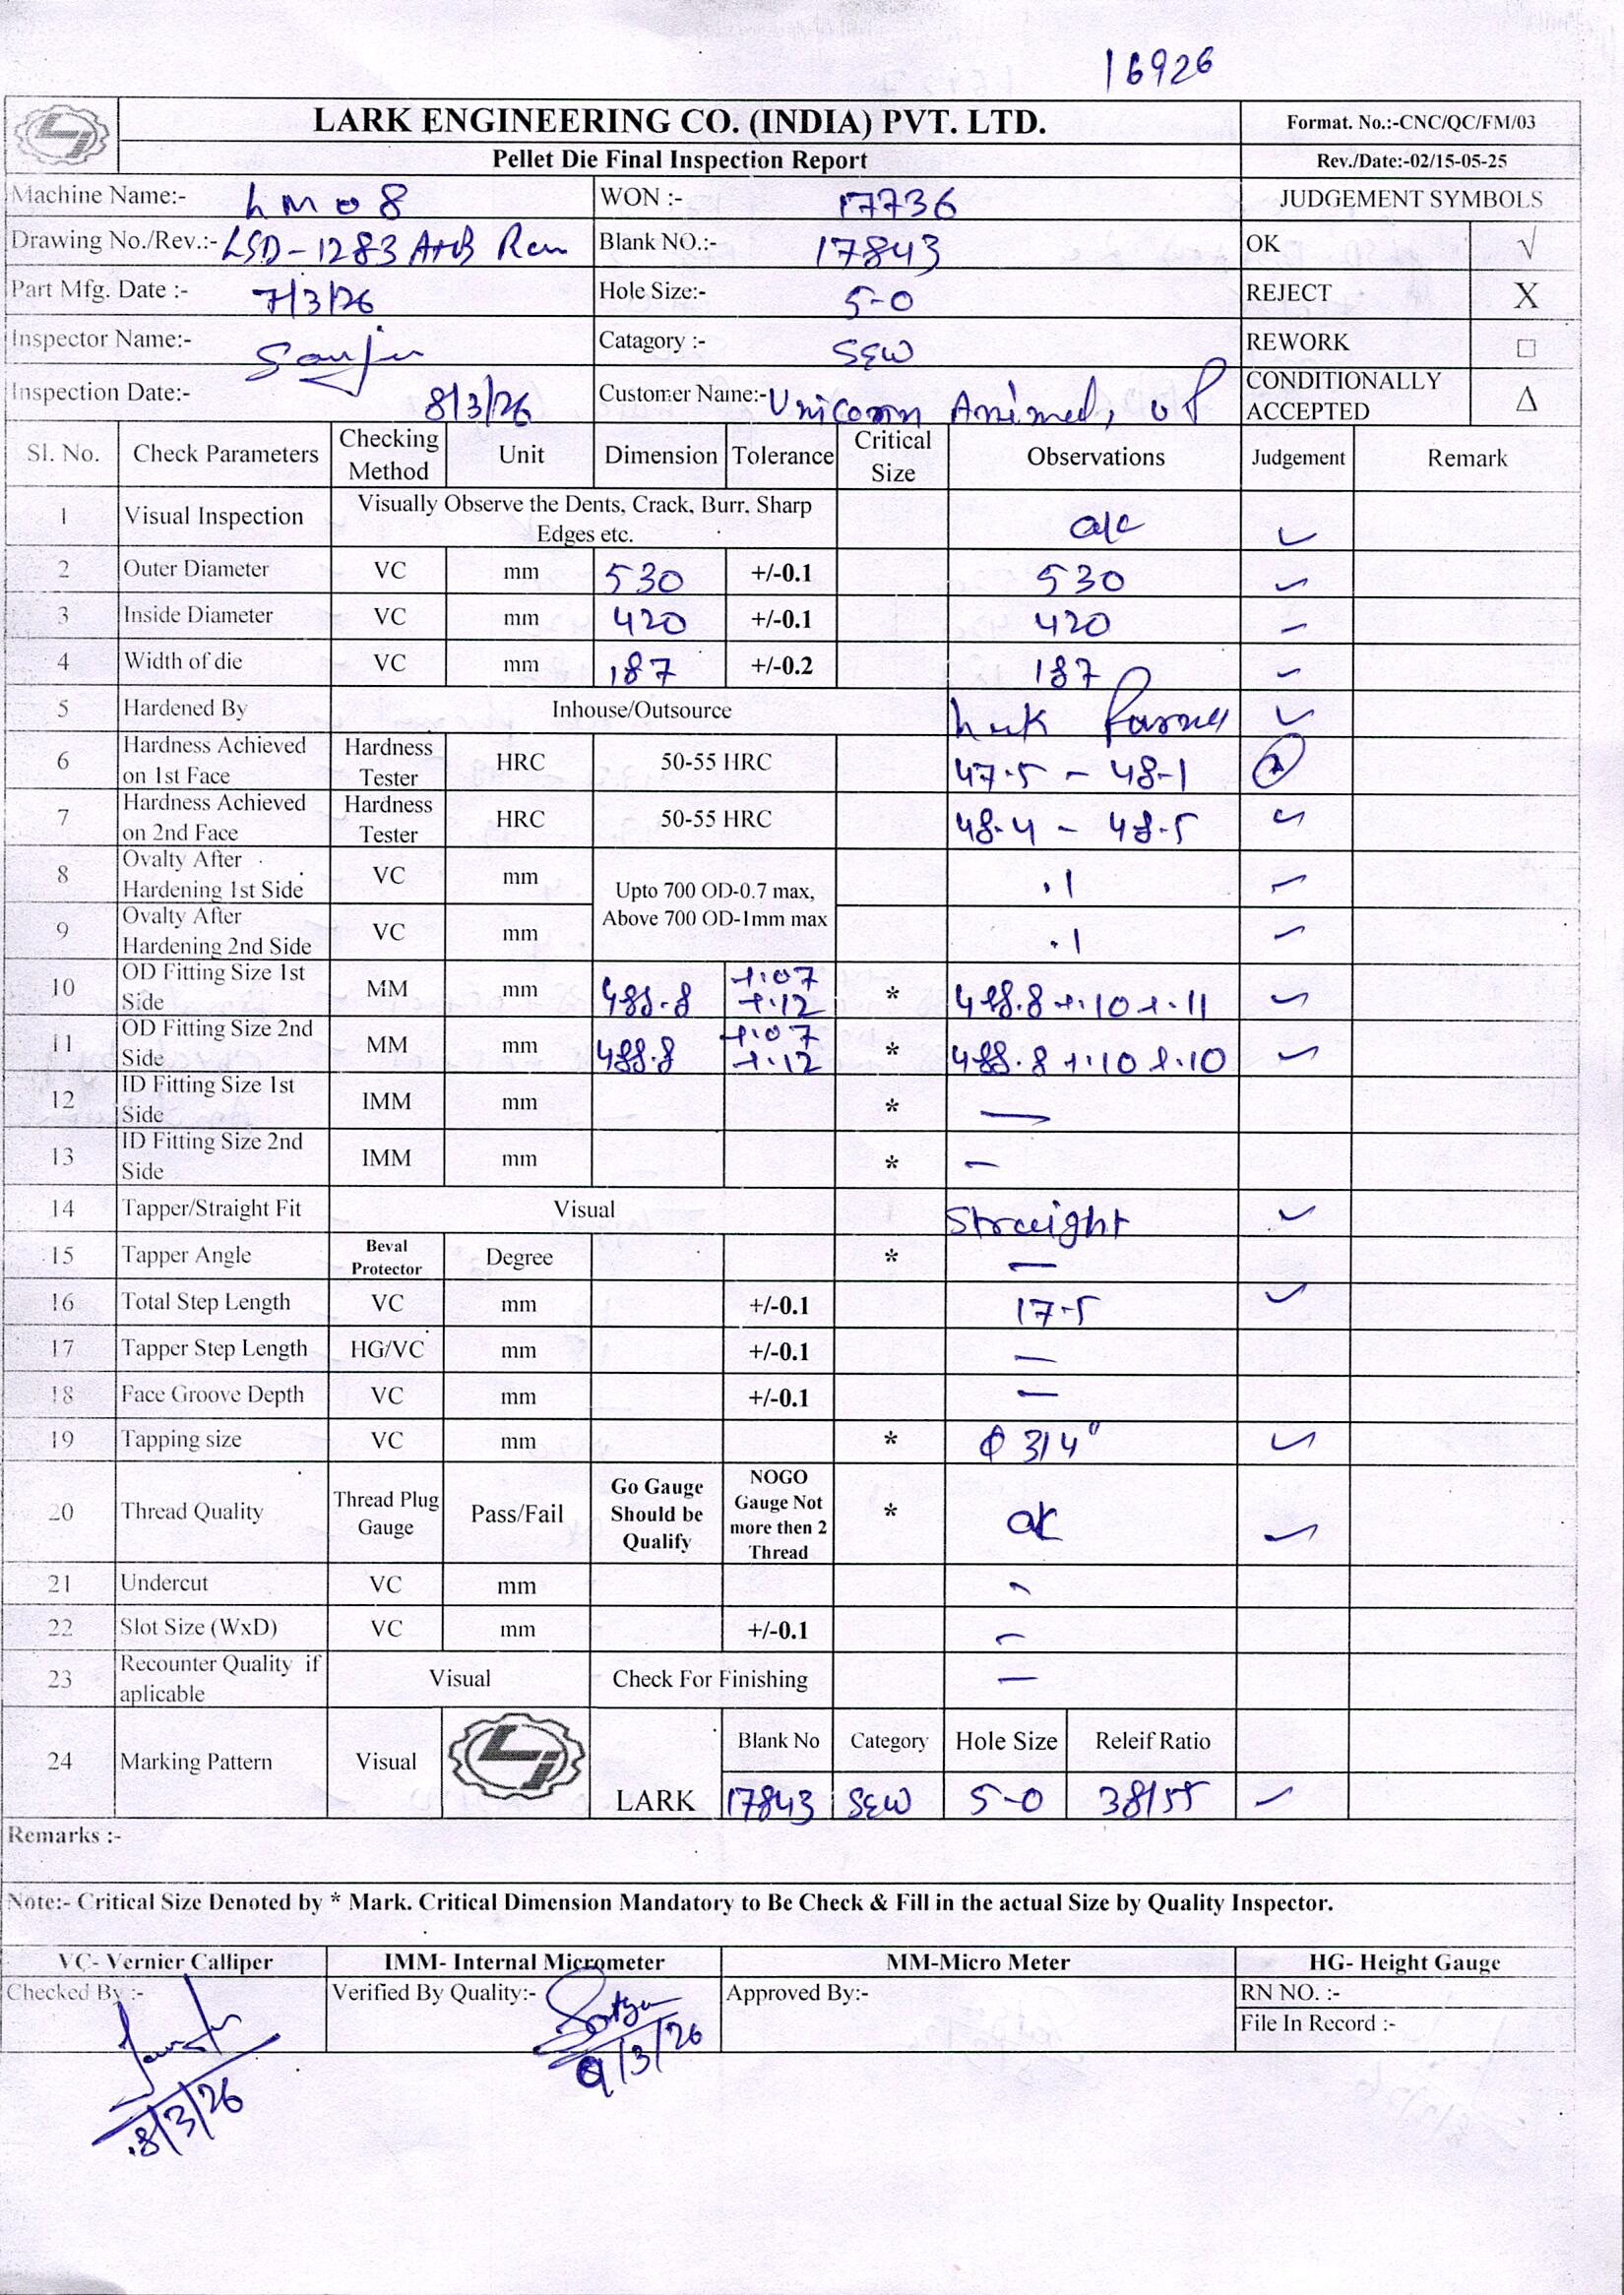 16926
LARK ENGINEERING CO. (INDIA) PVT. LTD. Format. No.:-CNC/QC/FM/03
Pellet Die Final Inspection Report Rev./Date:-02/15-05-25
Machine Name:- LM08 WON :- 17736 JUDGEMENT SYMBOLS
Drawing No./Rev.:- LSD-1283 Blank NO.:- 17843 OK √
Part Mfg. Date :- 7/3/26 Hole Size:- 5-0 REJECT X
Inspector Name:- Catagory :- S&W REWORK □
Inspection Date:- 8/3/26 Customer Name:- UP CONDITIONALLY ACCEPTED Δ
Sl. No. Check Parameters Checking Method Unit Dimension Tolerance Critical Size Observations Judgement Remark
1 Visual Inspection Visually Observe the Dents, Crack, Burr, Sharp Edges etc. ok ✓
2 Outer Diameter VC mm 530 +/-0.1 530 ✓
3 Inside Diameter VC mm 420 +/-0.1 420 ✓
4 Width of die VC mm 187 +/-0.2 187 ✓
5 Hardened By Inhouse/Outsource ✓
6 Hardness Achieved on 1st Face Hardness Tester HRC 50-55 HRC 47.5 - 48-1
7 Hardness Achieved on 2nd Face Hardness Tester HRC 50-55 HRC 48.4 - 48.5 ✓
8 Ovalty After Hardening 1st Side VC mm Upto 700 OD-0.7 max, Above 700 OD-1mm max .1 ✓
9 Ovalty After Hardening 2nd Side VC mm .1 ✓
10 OD Fitting Size 1st Side MM mm 488.8 +.07 +.12 * 488.8 +.10 +.11 ✓
11 OD Fitting Size 2nd Side MM mm 488.8 +.07 +.12 * 488.8 +.10 +.10 ✓
12 ID Fitting Size 1st Side IMM mm * —
13 ID Fitting Size 2nd Side IMM mm * —
14 Tapper/Straight Fit Visual Straight ✓
15 Tapper Angle Beval Protector Degree * —
16 Total Step Length VC mm +/-0.1 17.5 ✓
17 Tapper Step Length HG/VC mm +/-0.1 —
18 Face Groove Depth VC mm +/-0.1 —
19 Tapping size VC mm * φ 3/4" ✓
20 Thread Quality Thread Plug Gauge Pass/Fail Go Gauge Should be Qualify NOGO Gauge Not more then 2 Thread * ok ✓
21 Undercut VC mm —
22 Slot Size (WxD) VC mm +/-0.1 —
23 Recounter Quality if aplicable Visual Check For Finishing —
24 Marking Pattern Visual LARK Blank No Category Hole Size Releif Ratio
17843 S&W 5-0 38/55 ✓
Remarks :-
Note:- Critical Size Denoted by * Mark. Critical Dimension Mandatory to Be Check & Fill in the actual Size by Quality Inspector.
VC- Vernier Calliper IMM- Internal Micrometer MM-Micro Meter HG- Height Gauge
Checked By :- Verified By Quality:- Approved By:- RN NO. :-
File In Record :-
9/3/26
8/3/26